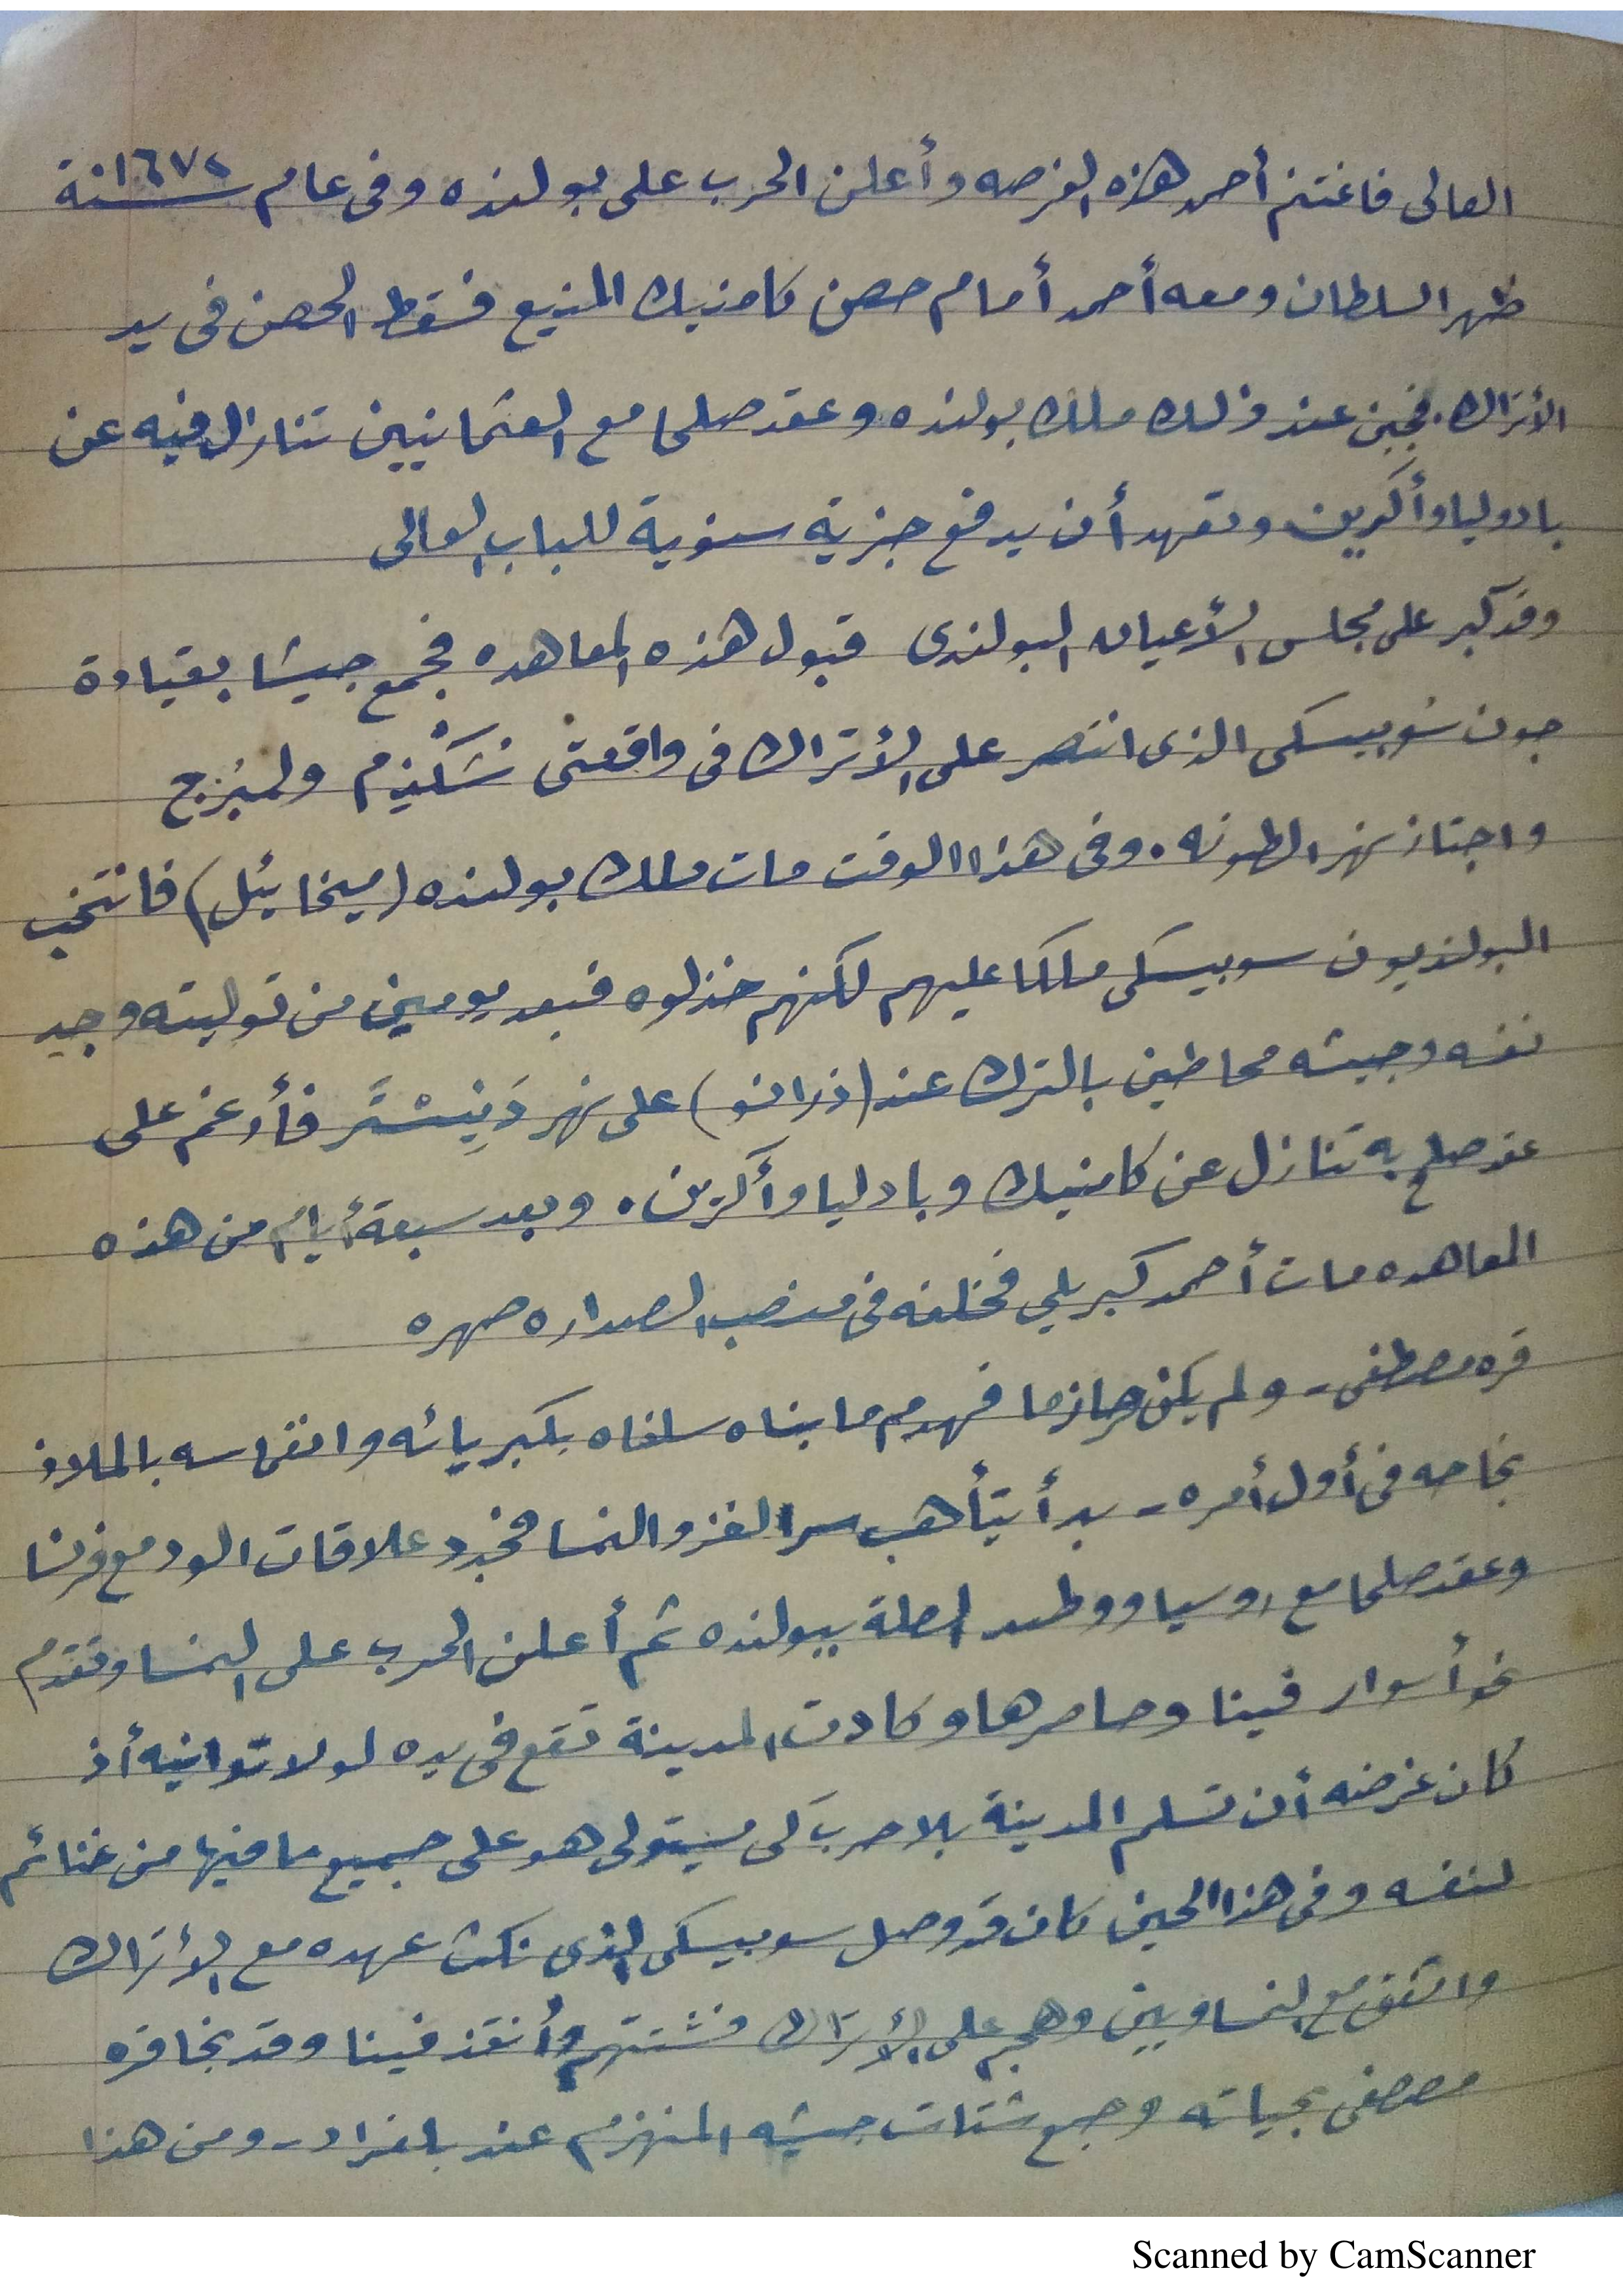 العالى فاغتنم أحمد هذه الفرصه وأعلن الحرب على بولنده وفى عام سنة ١٦٧٢
ظهر السلطان ومعه أحمد أمام حصن كامنيك المنيع فسقط الحصن فى يد
الأتراك. فجبن عند ذلك ملك بولنده وعقد صلحا مع العثمانيين تنازل فيه عن
بادوليا وأكرين وتعهد أن يدفع جزية سنوية للباب العالى
وقد كبر على مجلس الأعيان البولندى قبول هذه المعاهده فجمع جيشا بقيادة
جون سوبيسكى الذى انتصر على الأتراك فى واقعتى شكذيم ولمبُرج
واجتاز نهر الطونه. وفى هذا الوقت مات ملك بولنده (ميخائيل) فانتخب
البولنديون سوبيسكى ملكا عليهم لكنهم خذلوه فبعد يومين من توليته وجد
نفسه وجيشه محاطين بالترك عند (ذرانو) على نهر دَنِيستَر فأرغم على
عقد صلح به تنازل عن كامنيك وبادليا وأكرين. وبعد سبعة أيام من هذه
المعاهده مات أحمد كبريلي فخلفه فى منصب الصداره صهره
قره مصطفى - ولم يكن حازما فهدم ما بناه سلفاه بكبريائه وانغماسه بالملاذ
نجاحه فى أول أمره - بدأ يتأهب سرا لغزو النمسا فجدد علاقات الود مع فرنسا
وعقد صلحا مع روسيا ووطد الصلة ببولنده ثم أعلن الحرب على النمسا وتقدم
نحو أسوار فينا وحاصرها وكادت المدينة تقع فى يده لولا توانيه أذ
كان غرضه أن تسلم المدينة بلا حرب كى يستولى هو على جميع ما فيها من غنائم
لنفسه وفى هذا الحين كان قد وصل سوبيسكى الذى نكث عهده مع الأتراك
واتفق مع النمساويين وهجم على الأتراك فشتتهم وأنقذ فينا وقد نجا قره
مصطفى بحياته وجمع شتات جيشه المنهزم عند بلغراد - ومن هذا
Scanned by CamScanner